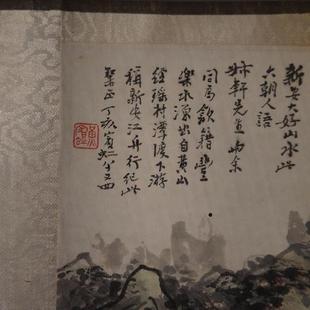 新安大好山水此
六朝人語
姉軒先生与余
同為歙籍豐
樂水源出自黃山
經瑤村潭渡下游
稱新安江舟行紀此
丁亥賓虹年八十四